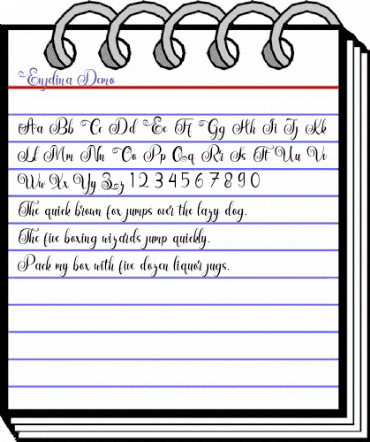 Enjelina Demo
Aa Bb Cc Dd Ee Ff Gg Hh Ii Jj Kk
Ll Mm Nn Oo Pp Qq Rr Ss Tt Uu Vv
Ww Xx Yy Zz 1 2 3 4 5 6 7 8 9 0
The quick brown fox jumps over the lazy dog.
The five boxing wizards jump quickly.
Pack my box with five dozen liquor jugs.